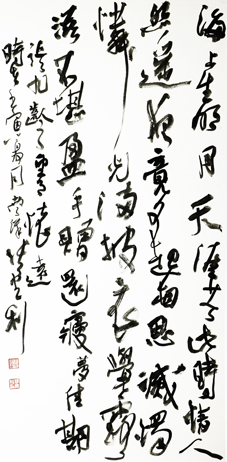 海上生明月天涯共此時情人
怨遥夜竟夕起相思滅燭
憐光滿披衣覺露
滋不堪盈手贈還寢夢佳期
張九齡望月懷遠
時在寅月利